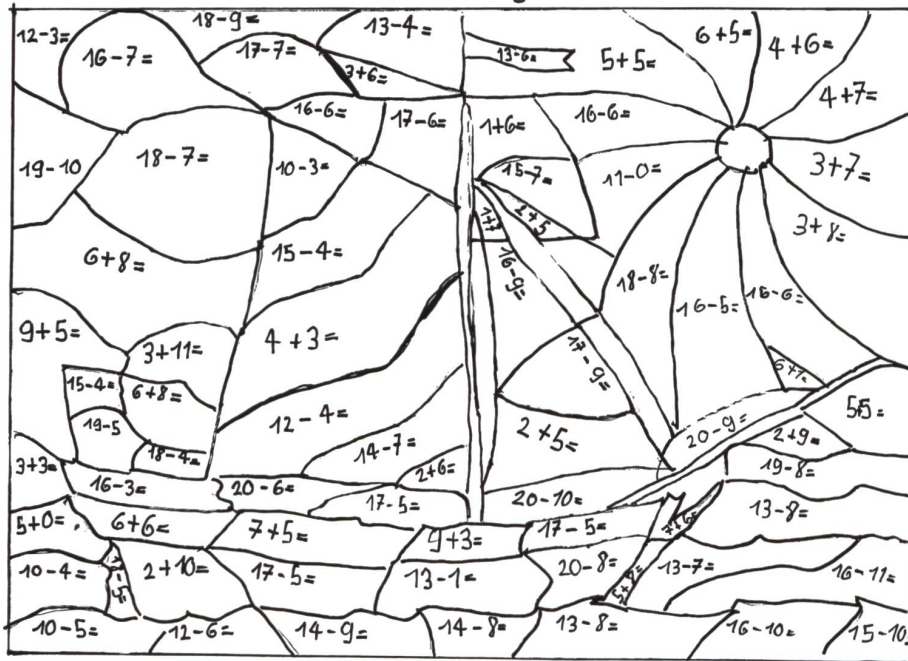 18-9=
13-4=
12-3=
16-7=
17-7=
3+6=
13-6=
5+5=
6+5=
4+6=
4+7=
16-6=
17-6=
1+6=
16-6=
19-10
18-7=
10-3=
15-7=
11-0=
3+7=
2+5
3+8=
6+8=
15-4=
16-9=
18-8=
16-5=
16-6=
9+5=
3+11=
4+3=
17-9=
15-4=
6+8=
19-5
12-4=
2+5=
20-9=
2+9=
18-4=
14-7=
3+3=
16-3=
20-6=
2+6=
17-5=
20-10=
19-8=
13-8=
5+0=
6+6=
7+5=
9+3=
17-5=
10-4=
2+10=
17-5=
13-1=
20-8=
13-7=
16-11=
10-5=
12-6=
14-9=
14-8=
13-8=
16-10=
15-10